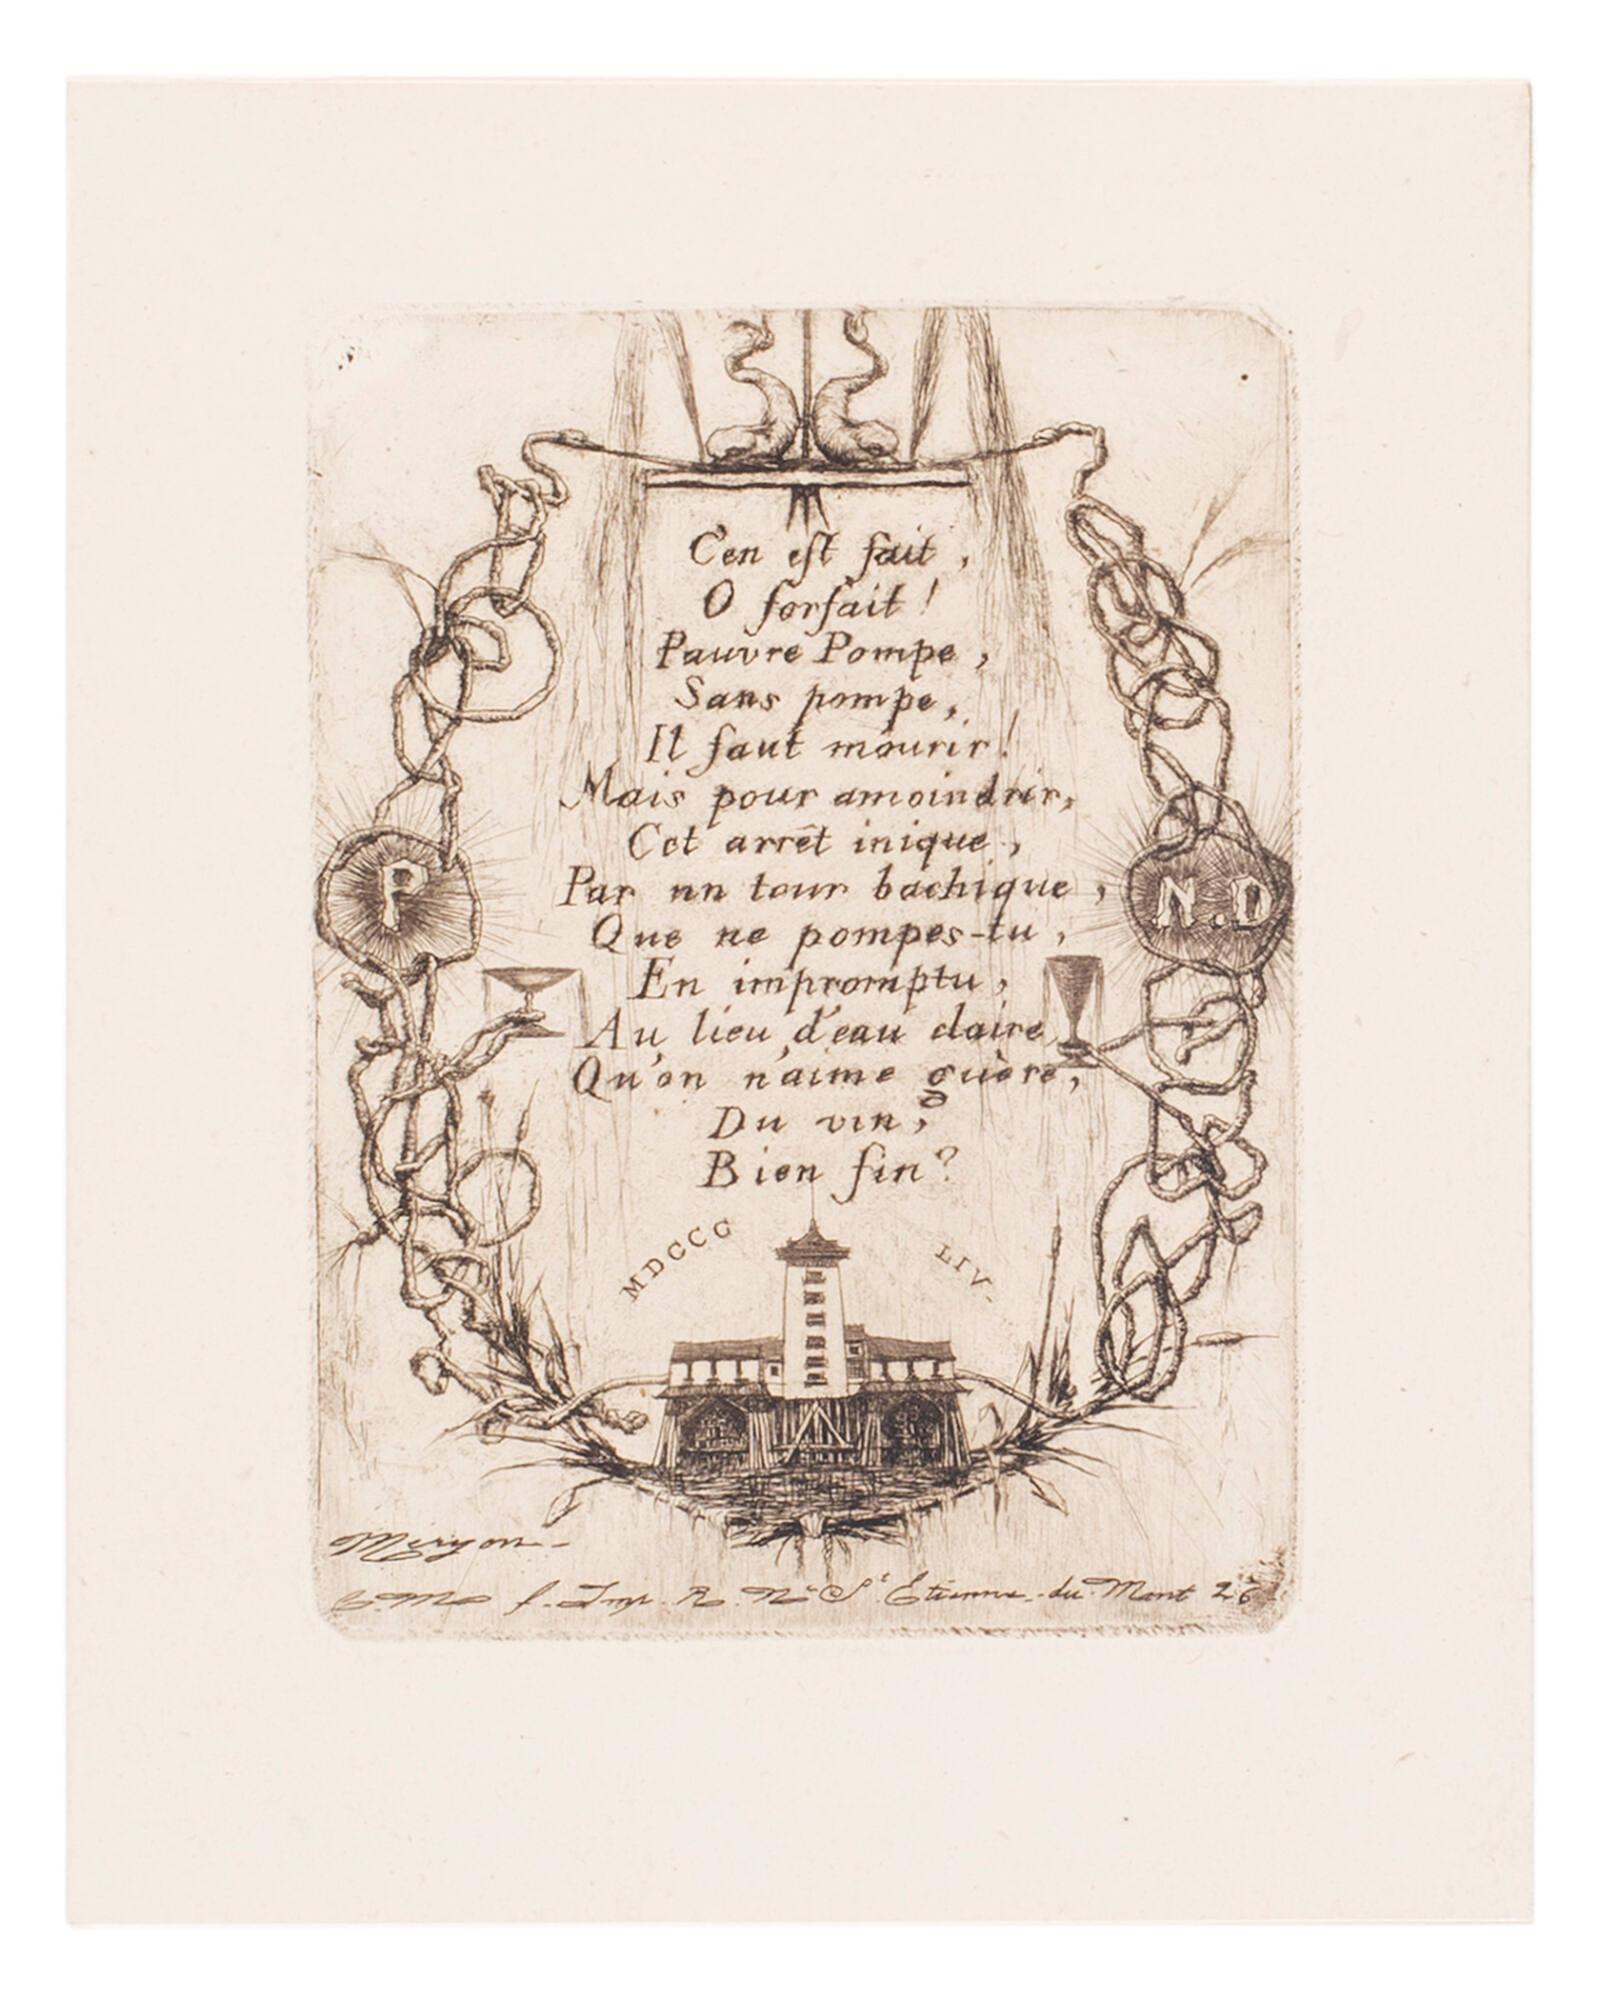 C'en est fait,
O forfait!
Pauvre Pompe,
Sans pompe,
Il faut mourir!
Mais pour amoindrir,
Cet arrêt inique,
Par un tour bachique,
Que ne pompes-tu,
En impromptu,
Au lieu d'eau claire,
Qu'on n'aime guère,
Du vin,
Bien fin?
P
N.D
MDCCC LIV.
Meryon
C. M f. Imp. R. Nve St Étienne-du-Mont 26